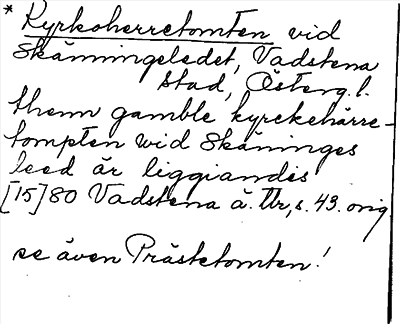 * Kyrkoherretomten vid
Skänningeledet, Vadstena
stad, Österg. l.
thenn gamble kyrckehärre-
tompten wid Skäninges
leed är liggiandes
[15]80 Vadstena ä. Tb, s. 43. orig
se även Prästetomten!